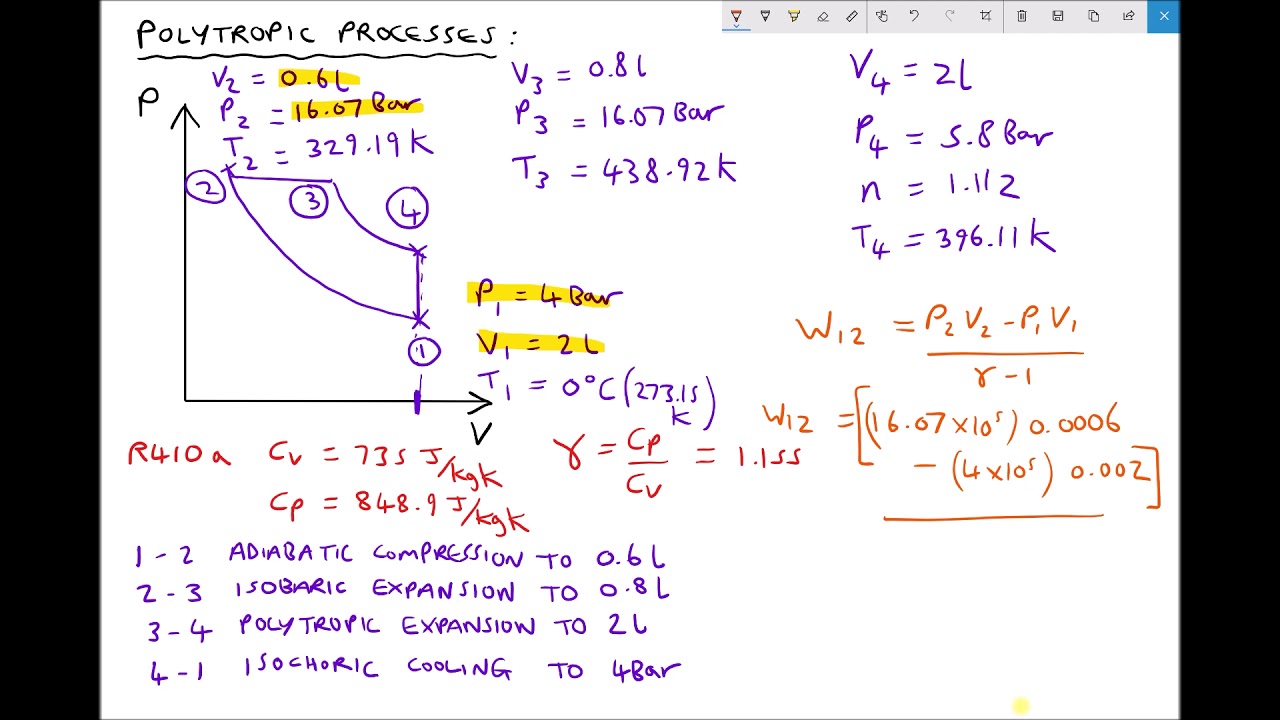 POLYTROPIC PROCESSES:
V2 = 0.6L
P2 = 16.07 Bar
T2 = 329.19K
V3 = 0.8L
P3 = 16.07 Bar
T3 = 438.92K
V4 = 2L
P4 = 5.8 Bar
n = 1.112
T4 = 396.11K
P
2
3
4
1
V
P1 = 4 Bar
V1 = 2L
T1 = 0°C (273.15K)
W12 = P2V2 - P1V1
γ - 1
W12 = [(16.07 x 10⁵) 0.0006
- (4 x 10⁵) 0.002]
R410a Cv = 735 J/kgK
Cp = 848.9 J/kgK
γ = Cp/Cv = 1.155
1 - 2 ADIABATIC COMPRESSION TO 0.6L
2 - 3 ISOBARIC EXPANSION TO 0.8L
3 - 4 POLYTROPIC EXPANSION TO 2L
4 - 1 ISOCHORIC COOLING TO 4Bar